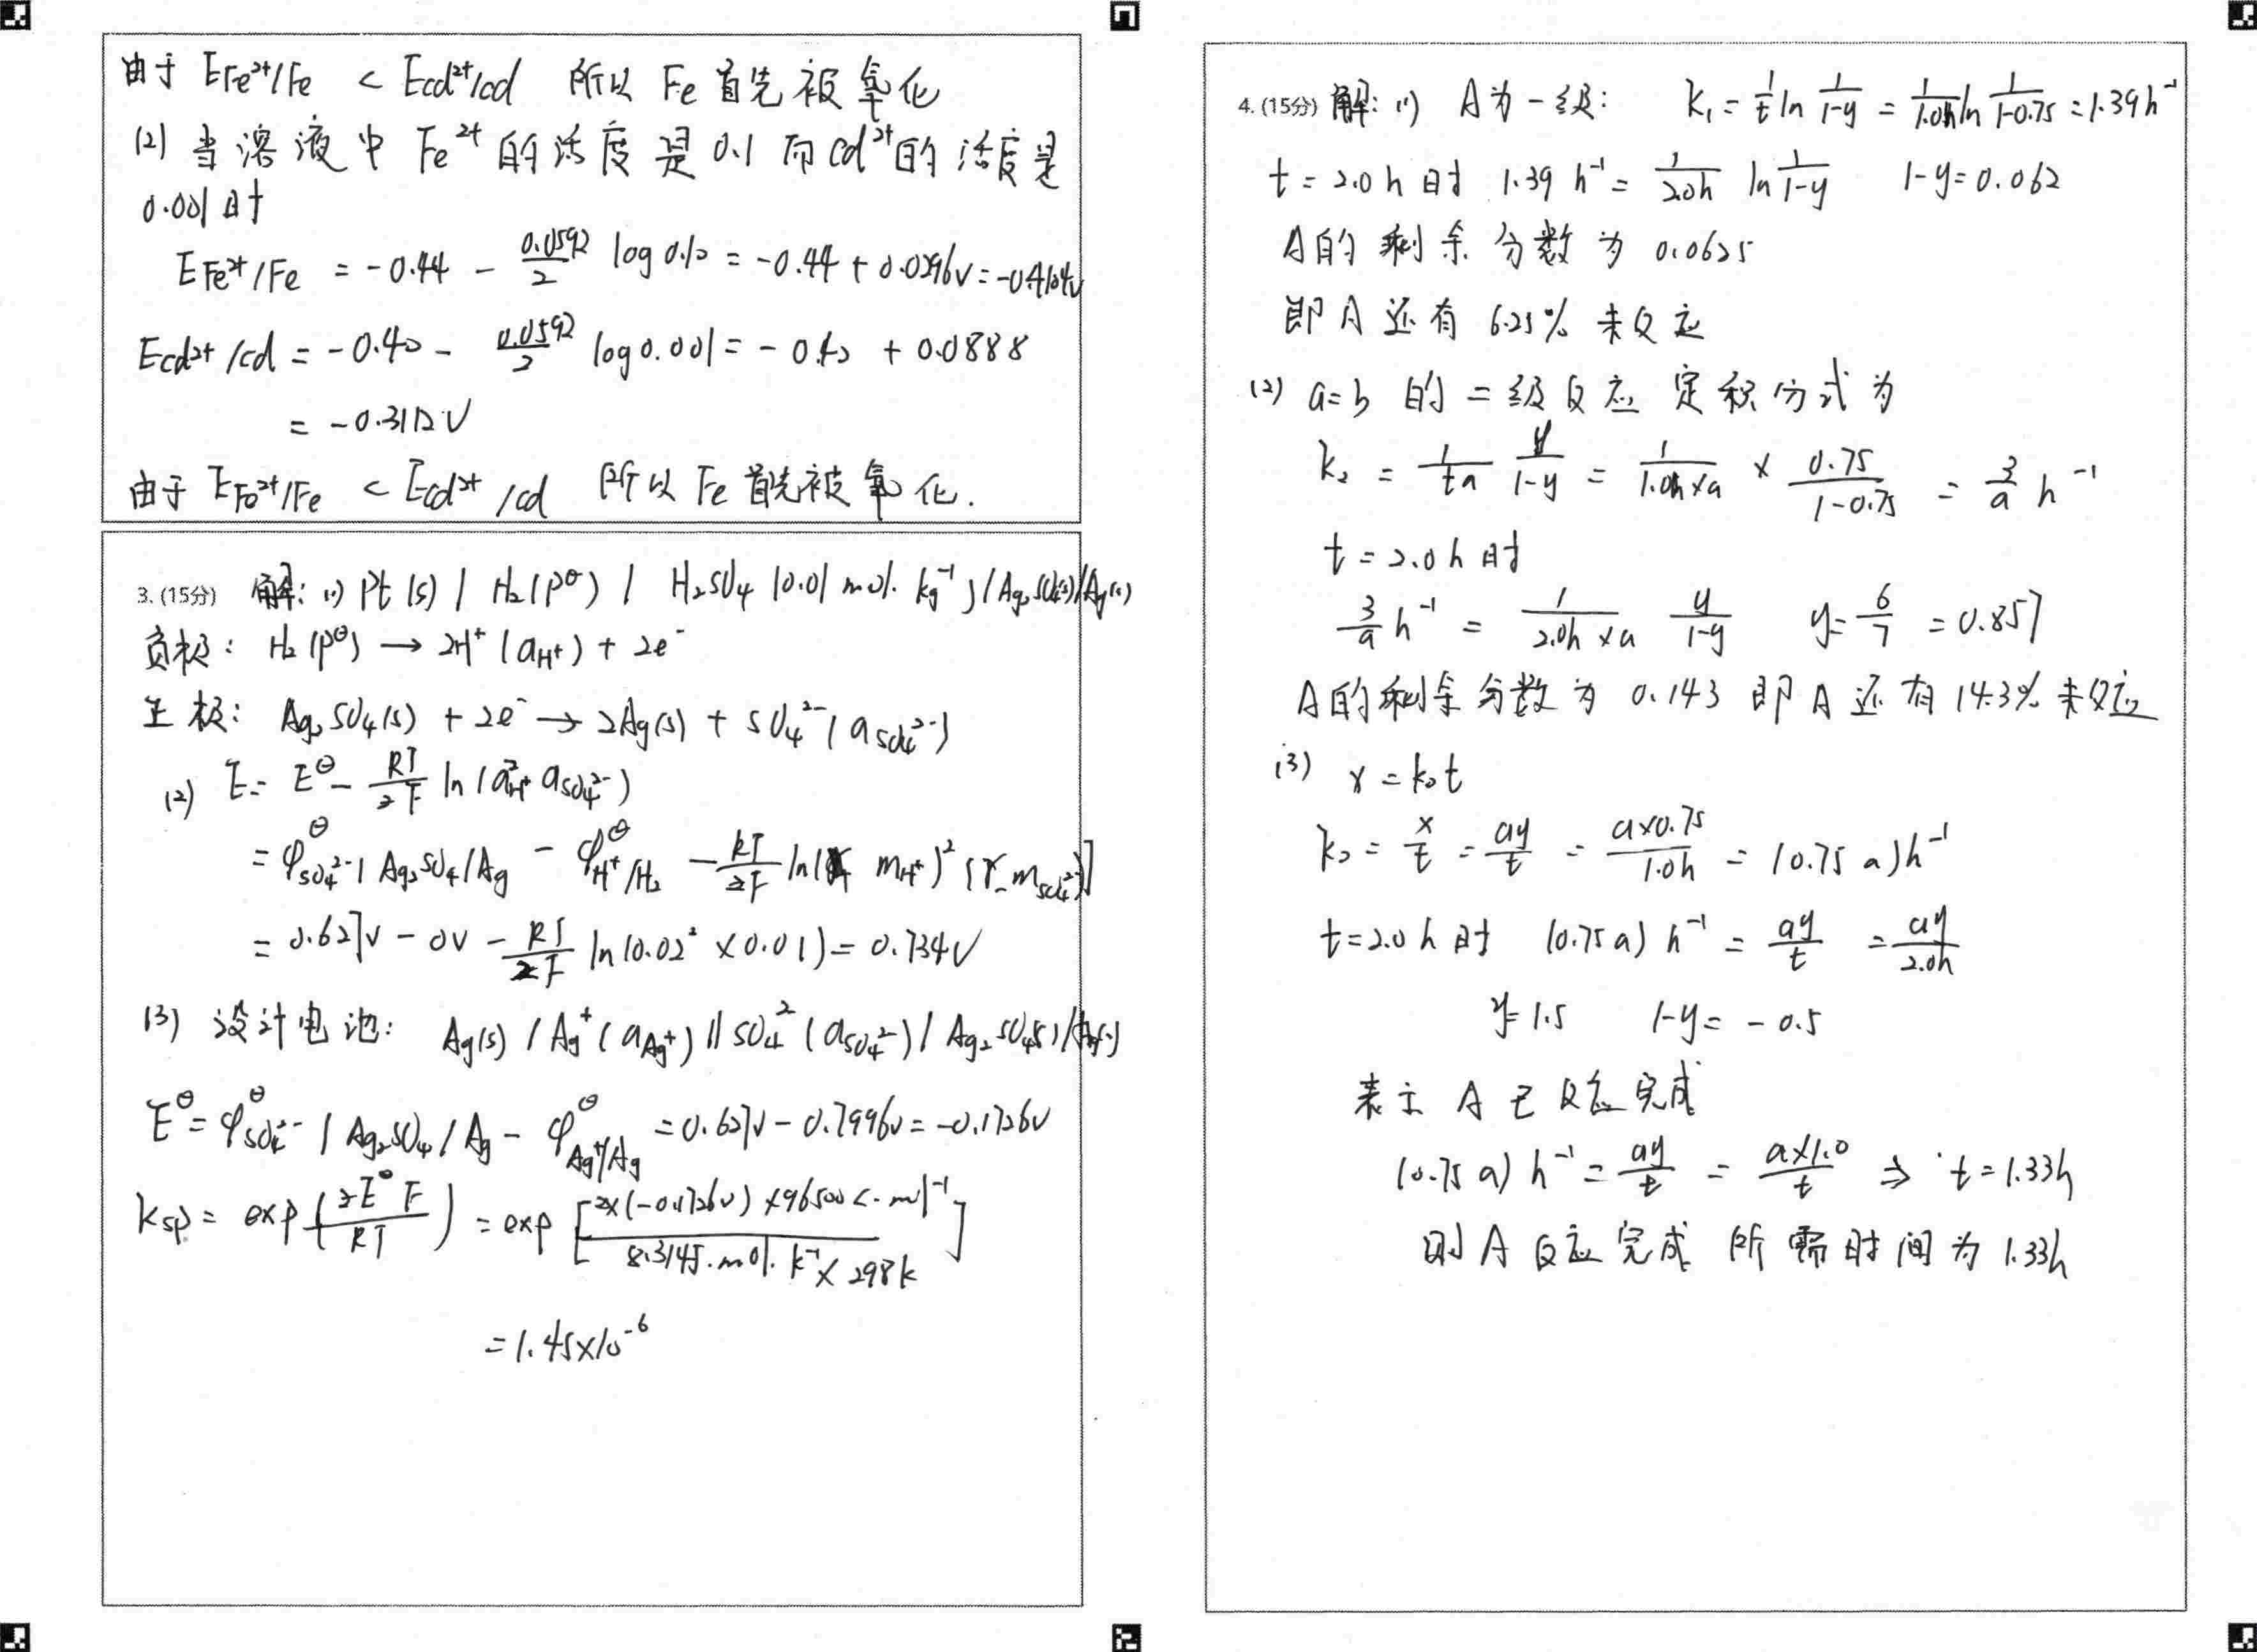 由于 E Fe²⁺/Fe < E cd²⁺/cd 所以 Fe 首先被氧化
(2) 当溶液中 Fe²⁺ 的活度是 0.1 而 cd²⁺的活度是
0.001时
E Fe²⁺/Fe = -0.44 - 0.0592/2 log 0.10 = -0.44 + 0.0296v = -0.4104v
E cd²⁺/cd = -0.40 - 0.0592/2 log 0.001 = -0.40 + 0.0888
= -0.3112V
由于 E Fe²⁺/Fe < E cd²⁺/cd 所以 Fe 首先被氧化.
3. (15分) 解: (1) Pt (s) / H₂(p^θ) / H₂SO₄ (0.01 mol. kg⁻¹) / Ag₂SO₄(s)/Ag(s)
负极: H₂(p^θ) → 2H⁺ (a_H⁺) + 2e⁻
正极: Ag₂SO₄(s) + 2e⁻ → 2Ag(s) + SO₄²⁻ (a_SO₄²⁻)
(2) E = E^θ - RT/2F ln (a²_H⁺ a_SO₄²⁻)
= φ^θ SO₄²⁻/Ag₂SO₄/Ag - φ^θ H⁺/H₂ - RT/2F ln[( m_H⁺)² (γ₋ m_SO₄²⁻)]
= 0.627v - 0v - RT/2F ln(0.02² × 0.01) = 0.734V
(3) 设计电池: Ag(s) / Ag⁺ (a_Ag⁺) // SO₄² (a_SO₄²⁻) / Ag₂SO₄(s) / Ag(s)
E^θ = φ^θ SO₄²⁻/Ag₂SO₄/Ag - φ^θ Ag⁺/Ag = 0.627v - 0.7996v = -0.1726v
Ksp = exp(2E^θF/RT) = exp[2×(-0.1726v)×96500 C. mol⁻¹ / 8.314J. mol. k⁻¹ × 298k]
= 1.45×10⁻⁶
4. (15分) 解: (1) A为一级: k₁ = 1/t ln 1/(1-y) = 1/1.0h ln 1/(1-0.75) = 1.39 h⁻¹
t = 2.0 h 时 1.39 h⁻¹ = 1/2.0h ln 1/(1-y) 1-y = 0.062
A的剩余分数为 0.0625
即 A 还有 6.25% 未反应
(2) a=b 的二级反应定积分式为
k₂ = 1/ta y/(1-y) = 1/(1.0h×a) × 0.75/(1-0.75) = 3/a h⁻¹
t = 2.0 h 时
3/a h⁻¹ = 1/(2.0h × a) y/(1-y) y = 6/7 = 0.857
A的剩余分数为 0.143 即 A 还有 14.3% 未反应
(3) x = k₀t
k₀ = x/t = ay/t = a×0.75/1.0h = (0.75 a) h⁻¹
t = 2.0 h 时 (0.75 a) h⁻¹ = ay/t = ay/2.0h
y = 1.5 1-y = -0.5
表示 A 已反应完成
(0.75 a) h⁻¹ = ay/t = a×1.0/t ⇒ t = 1.33h
则 A 反应完成 所需时间为 1.33h